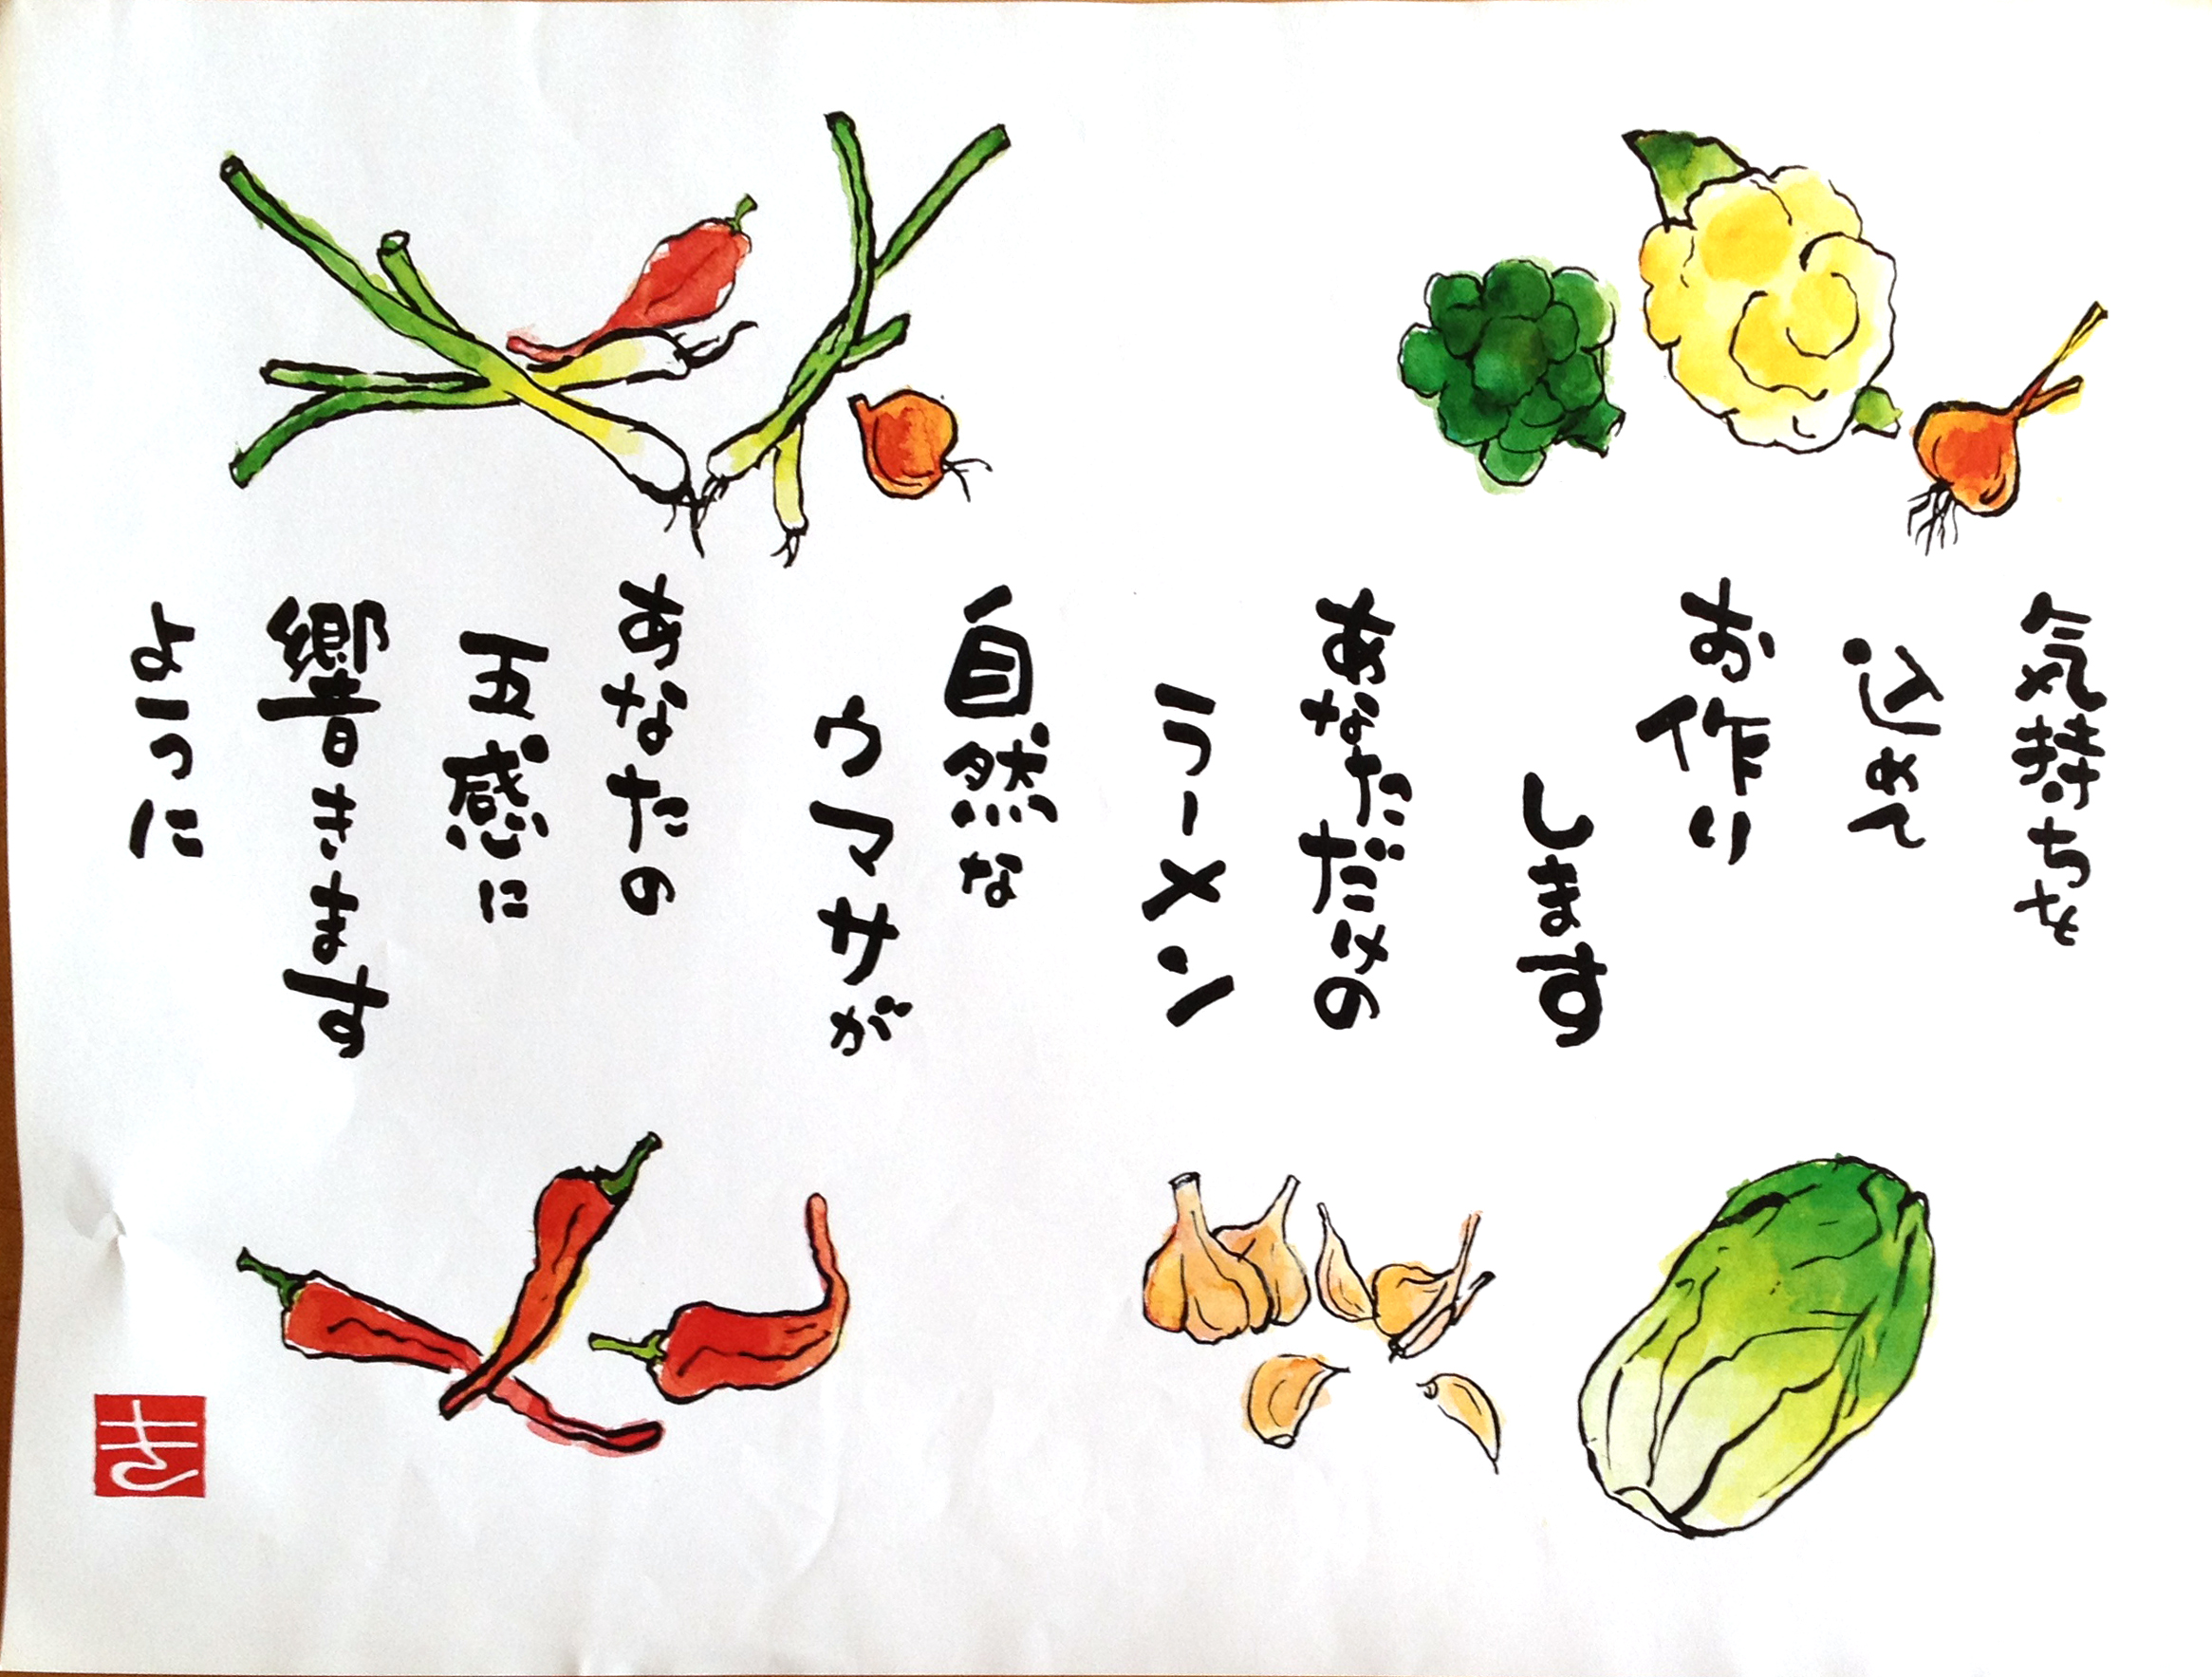 気持ちを
込めて
お作り
します
あなただけの
ラーメン
自然な
ウマサが
あなたの
五感に
響きます
ように
き